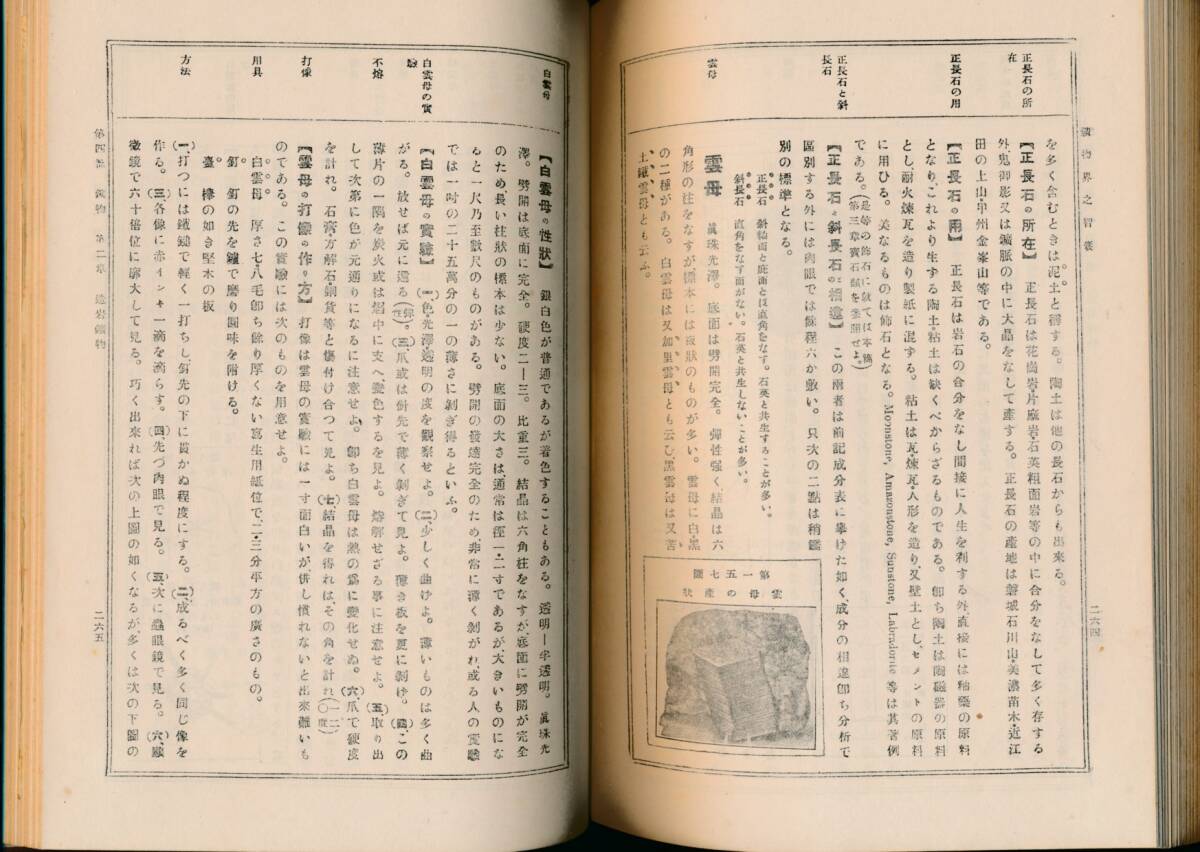 鑛物界之智嚢
二六四
正長石の所在
正長石の用
正長石と斜長石
雲母
を多く含むときは泥土と稱する。陶土は他の長石からも出來る。
【正長石の所在】　正長石は花崗岩・片麻岩・石英粗面岩等の中に合分をなして多く存する
外、鬼御影又は鑛脈の中に大晶をなして產する。正長石の產地は磐城石川山・美濃苗木・近江
田の上山・甲州金峯山等である。
【正長石の用】　正長石は岩石の合分をなし間接に人生を利する外、直接には釉藥の原料
となり、これより生ずる陶土・粘土は缺くべからざるものである。卽ち陶土は陶磁器の原料
とし、耐火煉瓦を造り製紙に混ずる。粘土は瓦・煉瓦・人形を造り、又壁土とし、セメントの原料
に用ひる。美なるものは飾石となる。Moonstone, Amazonstone, Sunstone, Labradorite 等は其著例
である。（是等の飾石に就ては本篇第三章寶石類を參照せよ。）
【正長石と斜長石の相違】　この兩者は前記成分表に擧げた如く、成分の相違卽ち分析で
區別する外には肉眼では餘程六か敷い。只次の二點は稍鑑
別の標準となる。
正長石　斜軸面と底面とは直角をなす。石英と共生することが多い。
斜長石　直角をなす面がない。石英と共生しないことが多い。
雲母　眞珠光澤。底面は劈開完全。彈性强く、結晶は六
角形の柱をなすが、標本には板狀のものが多い。雲母に白・黑
の二種がある。白雲母は又加里雲母とも云ひ、黑雲母は又苦
土鐵雲母とも云ふ。
第一五七圖
雲母の產狀
白雲母
白雲母の實驗
不熔
打像
用具
方法
【白雲母の性狀】　銀白色が普通であるが着色することもある。透明―半透明。眞珠光
澤。劈開は底面に完全。硬度二―三。比重三。結晶は六角柱をなすが、底面に劈開が完全
のため、長い柱狀の標本は少ない。底面の大さは通常は徑一・二寸であるが、大きいものにな
ると一尺乃至數尺のものがある。劈開の發達完全のため、非常に薄く剝がれ、或る人の實驗
では一吋の二十五萬分の一の薄さに剝ぎ得るといふ。
【白雲母の實驗】　（一）色・光澤・透明の度を觀察せよ。（二）少しく曲げよ。薄いものは多く曲
がる。放せば元に還る（彈性）。（三）爪或は針先で薄く剝ぎて見よ。薄き板を更に剝げ。（四）この
薄片の一隅を炭火或は焰中に支へ、變色するを見よ。熔解せざる事に注意せよ。（五）取り出
して次第に色が元通りになるに注意せよ。卽ち白雲母は熱の爲に變化せぬ。（六）爪で硬度
を計れ。石膏・方解石・銅貨等と傷付け合つて見よ。（七）結晶を得れば、その角を計れ（一二〇度）。
【雲母の打像の作り方】　打像は雲母の實驗には一寸面白いが、併し慣れないと出來難いも
のである。この實驗には次のものを用意せよ。
白雲母　厚さ七八毛卽ち餘り厚くない寫生用紙位で、二・三分平方の廣さのもの。
釘　釘の先を鑢で磨り圓味を附ける。
臺　樫の如き堅木の板
（一）打つには鐵鎚で輕く一打ちし、釘先の下に貫かぬ程度にする。（二）成るべく多く同じ像を
作る。（三）各像に赤インキ一滴を滴らす。（四）先づ肉眼で見る。（五）次に蟲眼鏡で見る。（六）顯
微鏡で六十倍位に廓大して見る。巧く出來れば次の上圖の如くなるが多くは次の下圖の
第四篇　鑛物　第二章　造岩鑛物
二六五